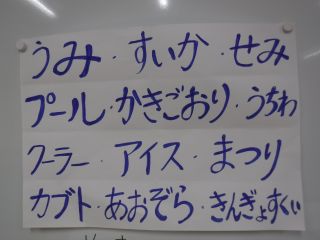 うみ・すいか・せみ
プール・かきごおり・うちわ
クーラー・アイス・まつり
カブト・あおぞら・きんぎょすくい